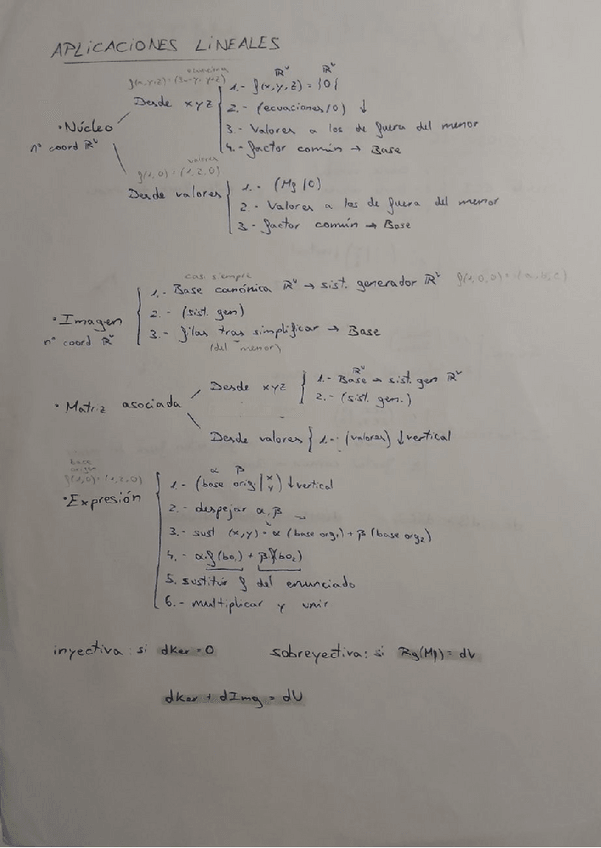 APLICACIONES LINEALES
• Núcleo
nº coord ℝᵁ
Desde xyz
1.- f(x,y,z) = {0}
2.- (ecuaciones/0) ↓
3.- Valores a los de fuera del menor
4.- factor común → Base
valores
f(1,0) = (1,2,0)
Desde valores
1.- (Mf |0)
2.- Valores a los de fuera del menor
3.- factor común → Base
• Imagen
nº coord ℝᵛ
casi siempre
1.- Base canónica ℝᵁ → sist. generador ℝᵛ
2.- (sist. gen)
3.- filas tras simplificar → Base
(del menor)
• Matriz asociada
Desde xyz
1.- Base ℝᵁ → sist. gen ℝᵛ
2.- (sist. gen.)
Desde valores
1.- (valores) ↓ vertical
base
f(1,0) = (1,2,0)
• Expresión
α β
1.- (base orig | x y) ↓ vertical
2.- despejar α, β
3.- sust (x,y) = α (base org₁) + β (base org₂)
4.- α f(bo₁) + β f(bo₂)
5. sustituir f del enunciado
6.- multiplicar y unir
inyectiva: si dker = 0 sobreyectiva: si Rg(Mf) = dV
dker + dImg = dU